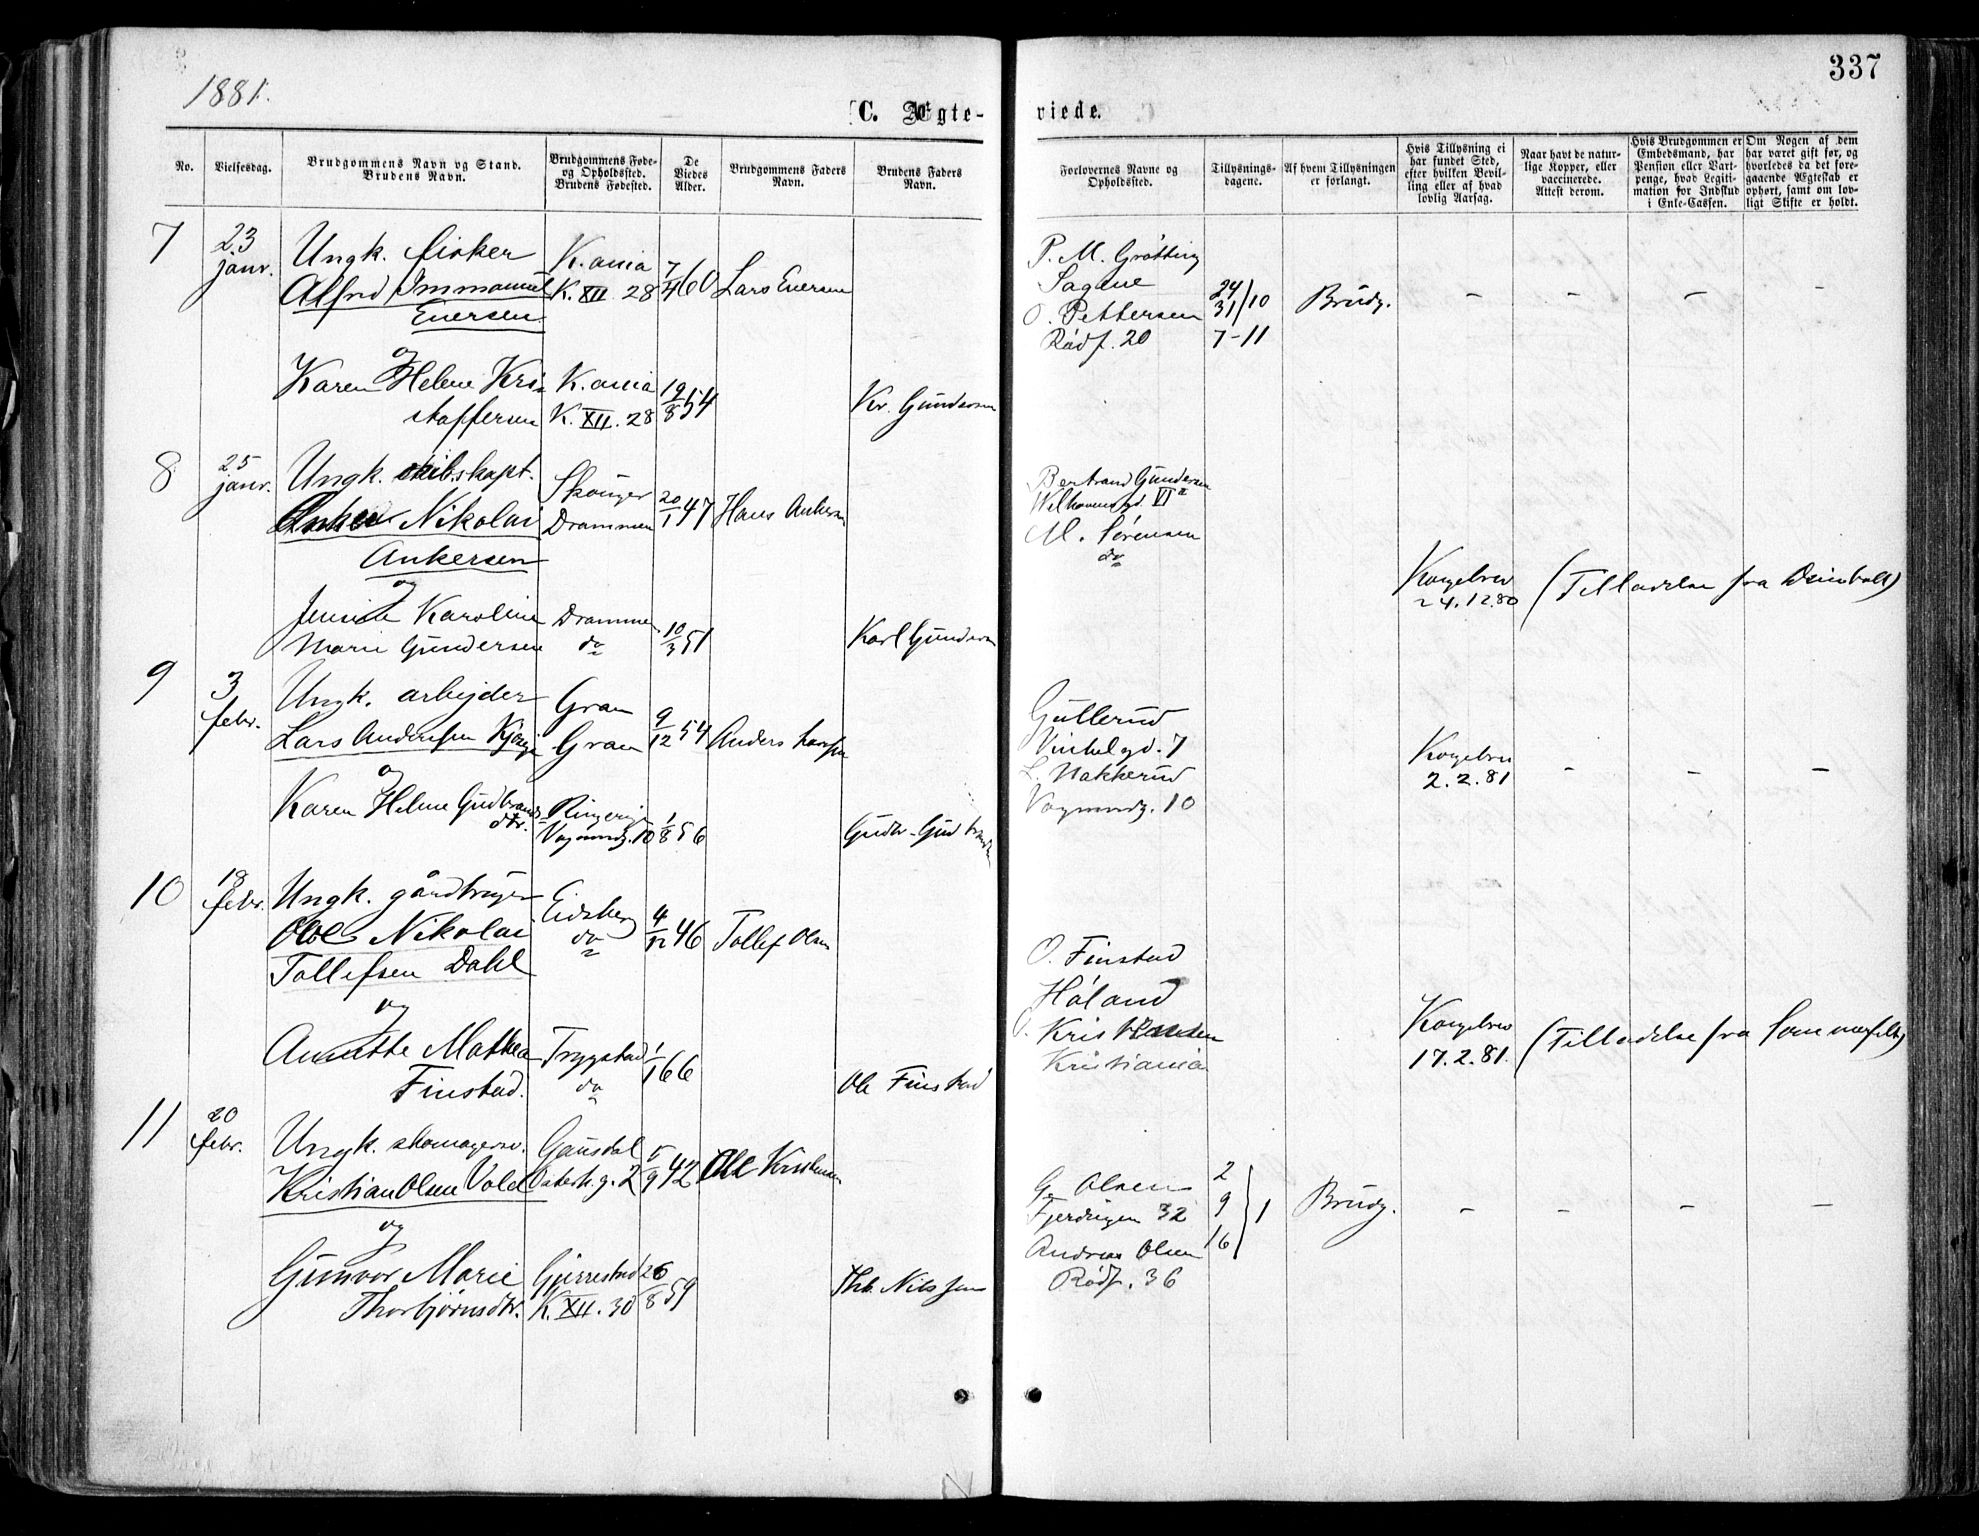 337
1881.
C. Ægte-
viede.
No.
Vielsesdag.
Brudgommens Navn og Stand.
Brudens Navn.
Brudgommens Føde-
og Opholdssted.
Brudens Fødested.
De
Viedes
Alder.
Brudgommens Faders
Navn.
Brudens Faders
Navn.
Forlovernes Navne og
Opholdssted.
Tillysnings-
dagene.
Af hvem Tillysningen
er forlangt.
Hvis Tillysning ei
har fundet Sted,
efter hvilken Bevil-
ling eller af hvad
lovlig Aarsag.
Naar havt de natur-
lige Kopper, eller
vaccinerede.
Attest derom.
Hvis Brudgommen er
Embedsmand, har
Pension eller Vart-
penge, hvad Legiti-
mation for Indskud
i Enke-Cassen.
Om Nogen af dem
har været gift før, og
hvorledes da det fore-
gaaende Ægteskab er
ophørt, samt om lov-
ligt Skifte er holdt.
7
23
janr.
Ungk. fisker
Alfred Immanuel
Eversen
og
Karen Helene Kri-
stoffersen
K.ania
K. XII 28
K.ania
K. XII. 28
7/4 60
19/8 54
Lars Eversen
Kr. Gundersen
P. M. Grötting
Sagene
O. Pettersen
Rödf. 20
24
31/10
7-11
Brudg.
- - - -
8
25
janr.
Ungk. skibskapt.
Anker Nikolai
Ankersen
og
Karoline
Marie Gundersen
Skouger
Drammen
Drammen
do
20/1 47
10/3 51
Hans Ankersen
Karl Gundersen
Bertrand Gundersen
VI
M. Sörensen
do
Kongebrev
24.12.80
(Tilladelse fra
9
3
febr.
Ungk. arbejder
Lars Andersen
og
Karen Helene Gudbrands-
dtr.
Gran
Gran
Ringerige
Vognmdg. 10
9/12 54
1/8 56
Anders Larssen
Gudbr. Gudbrandsen
Gullerud
Vinkelgd. 7
L. Nakkerud
Vognmdg. 10
Kongebrev
2.2.81
- - -
10
18
febr.
Ungk. gårdbruger
Ole Nikolai
Tollefsen Dahl
og
Annette Mathea
Finstad.
Eidsberg
do
Trygstad
do
4/12 46
1/1 66
Tollef Olsen
Ole Finstad
O. Finstad
Höland
O.
Kristiania
Kongebrev
17.2.81.
(Tilladelse fra Sommerfelt)
11
20
febr.
Ungk. skomagersv.
Kristian Olsen Vold
og
Gunvor Marie
Thorbjörnsdtr.
Gausdal
Osterh. g. 2
Gjerrestad
K. XII. 30
5/9 42
26/8 59
Ole Kristiansen
Thb. Nilssen
G. Olsen
Fjerdingen 32
Andreas Olsen
Rödf. 36
2
9
16
} 1
Brudg.
- - - -